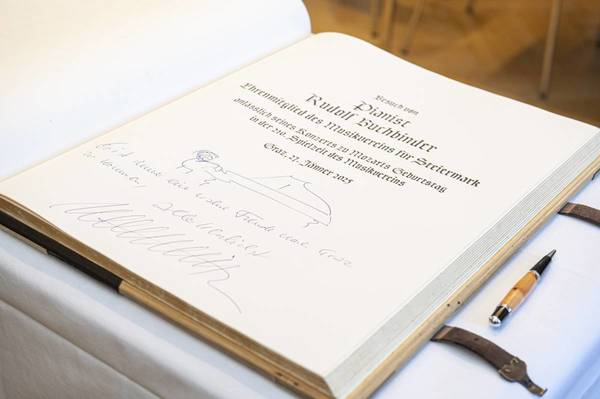 Besuch von
Pianist
Rudolf Buchbinder
Ehrenmitglied des Musikvereins für Steiermark
anlässlich seines Konzerts zu Mozarts Geburtstag
in der 210. Spielzeit des Musikvereins
Graz, 27. Jänner 2025
Es ist immer eine Freude nach Graz
zu kommen,